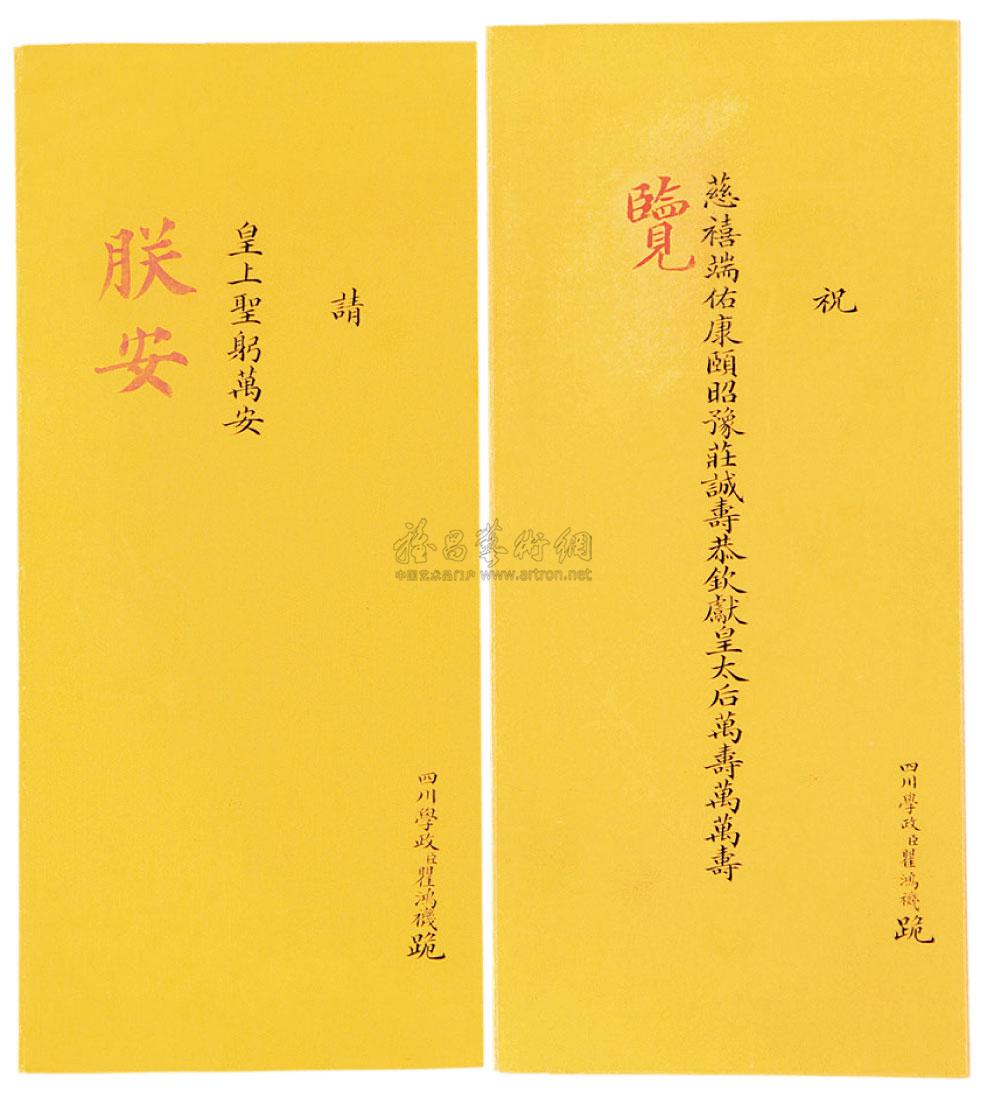 祝
慈禧端佑康頤昭豫莊誠壽恭欽獻皇太后萬壽萬萬壽
覽
四川學政臣瞿鴻禨跪
請
皇上聖躬萬安
朕安
四川學政臣瞿鴻禨跪
雅昌藝術網
中国艺术品门户 www.artron.net